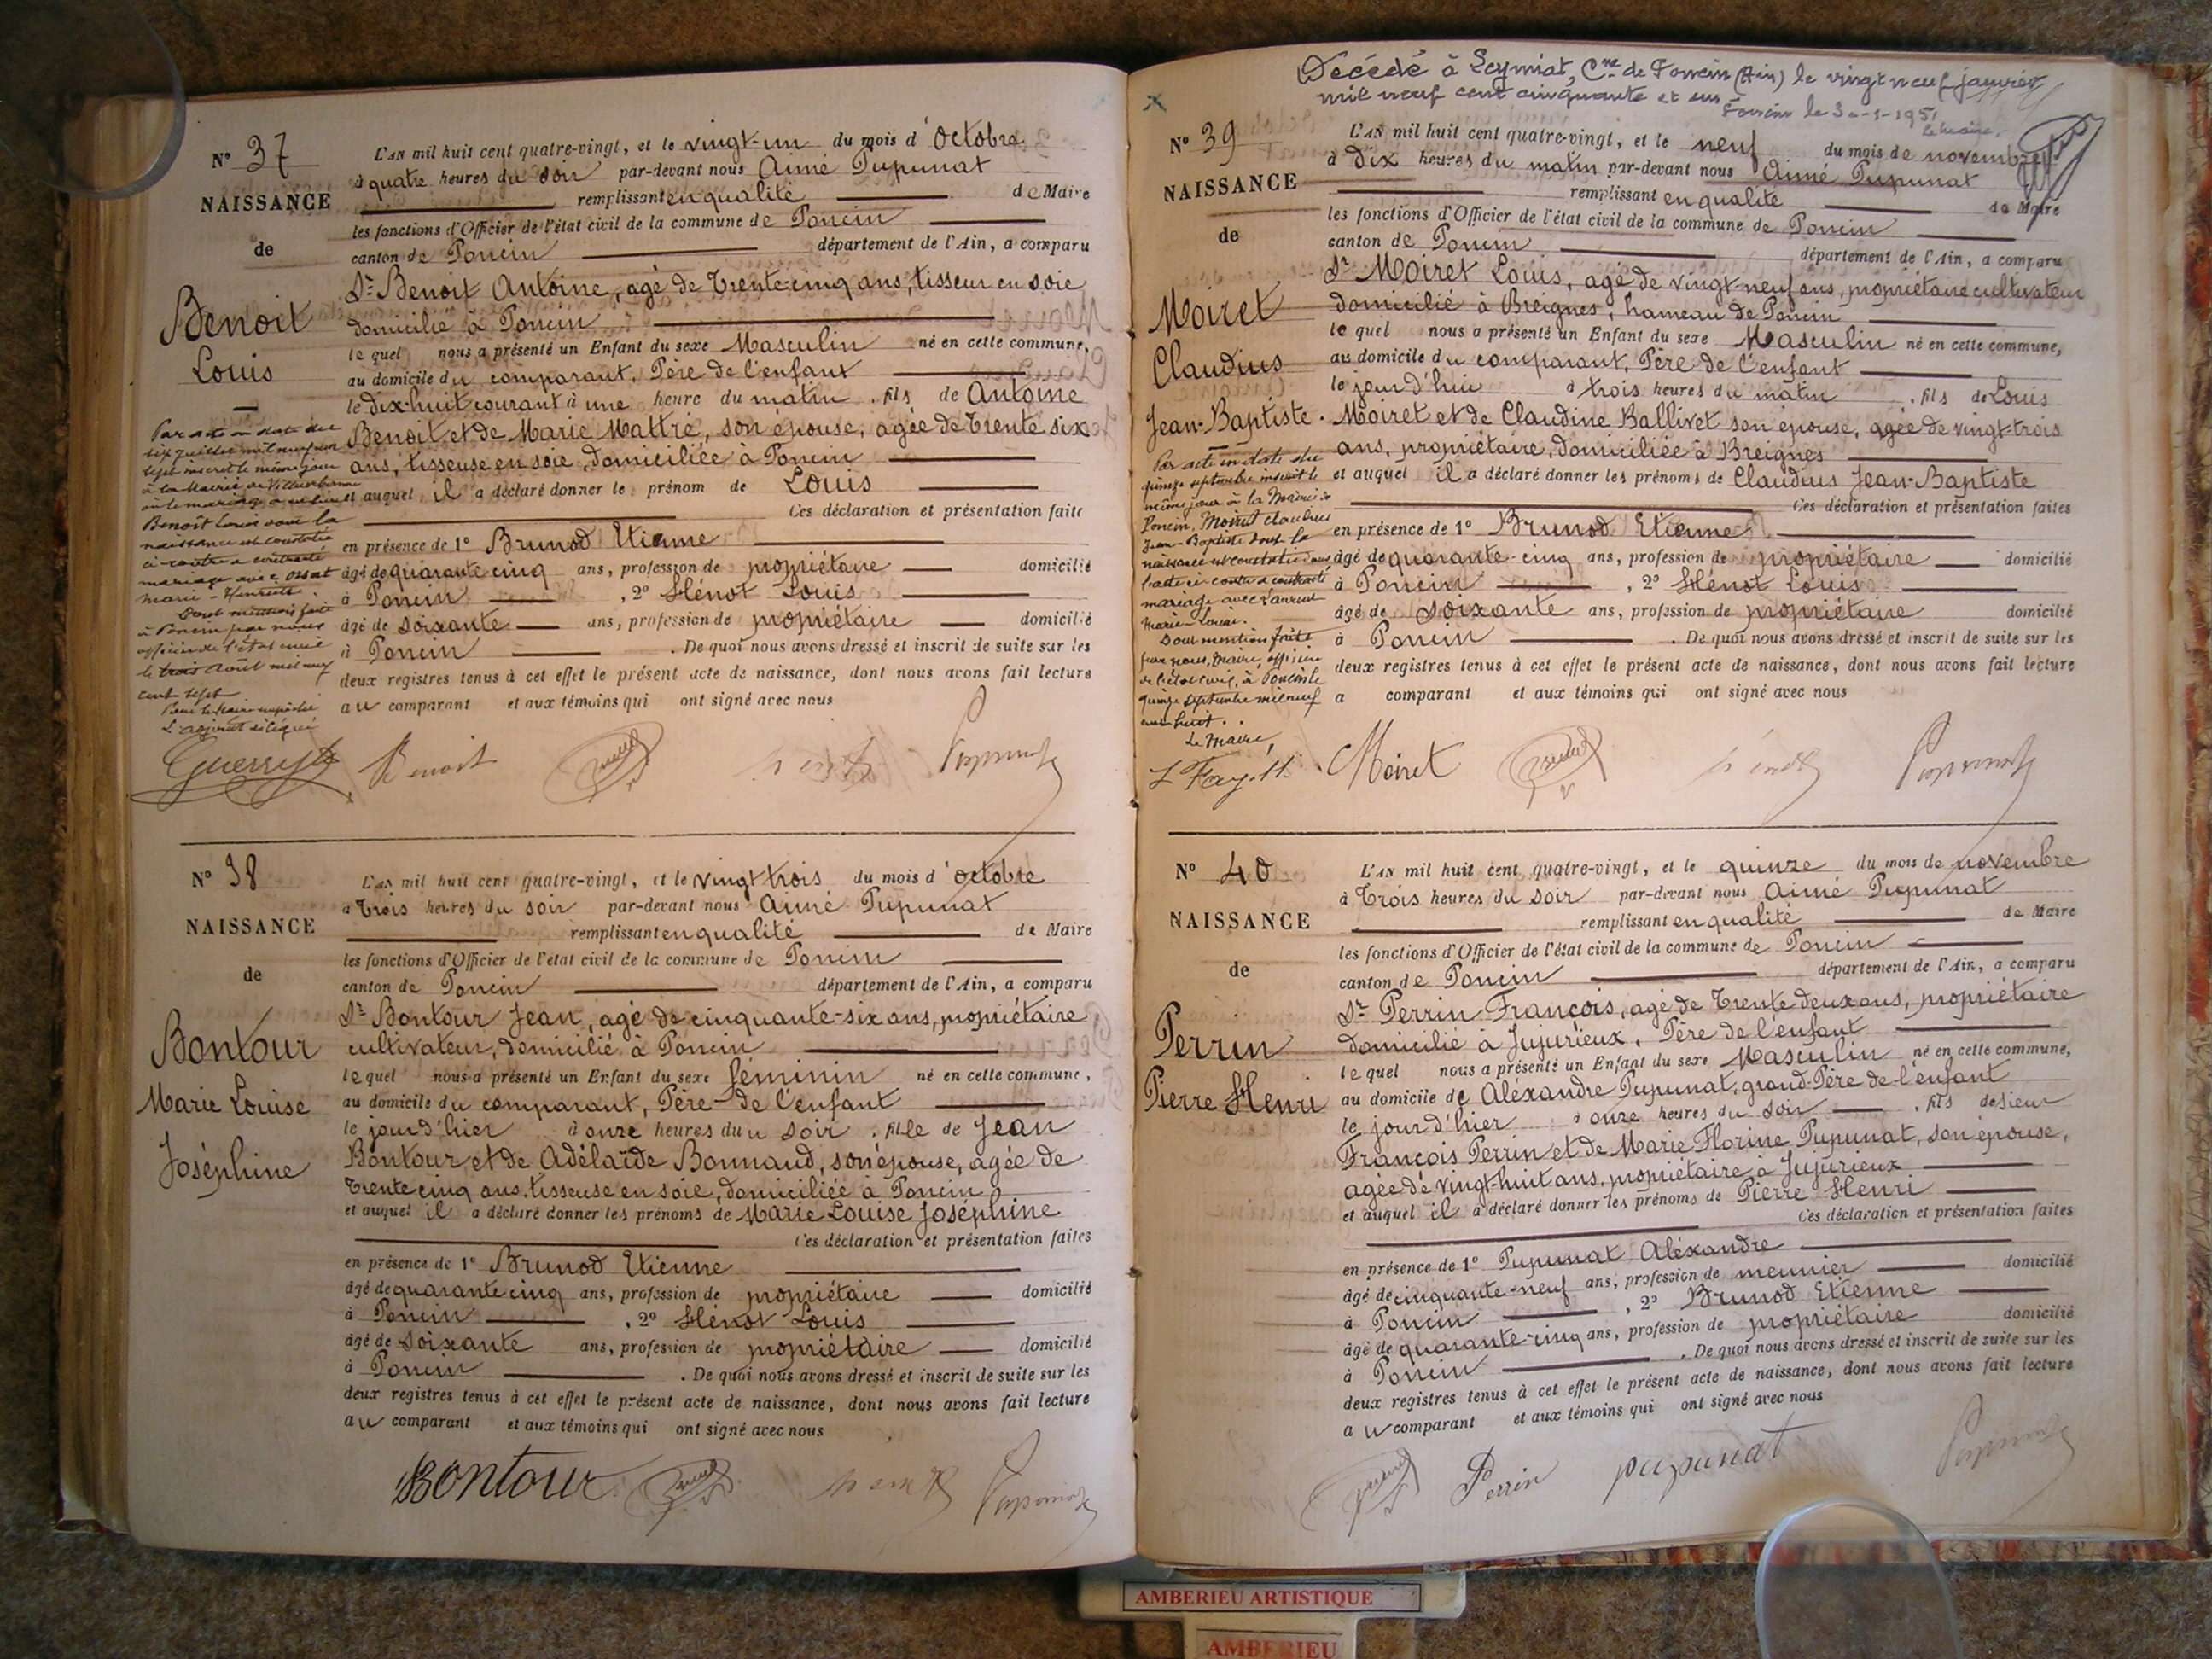 N° 37
NAISSANCE
de
Benoit
Louis
L'AN mil huit cent quatre-vingt, et le vingt-un du mois d'octobre
à quatre heures du soir par-devant nous Aimé Pupunat
remplissant en qualité de Maire
les fonctions d'Officier de l'état civil de la commune de Poncin
canton de Poncin département de l'Ain, a comparu
Sr Benoit Antoine, agé de trente-cinq ans, tisseur en soie
domicilié à Poncin
lequel nous a présenté un Enfant du sexe Masculin né en cette commune,
au domicile du comparant, Père de l'enfant
le dix-huit courant à une heure du matin, fils de Antoine
Benoit et de Marie Mattré, son épouse, agée de trente six
ans, tisseuse en soie, domiciliée à Poncin
et auquel il a déclaré donner le prénom de Louis
Ces déclaration et présentation faite
en présence de 1° Brunod Etienne
âgé de quarante cinq ans, profession de propriétaire domicilié
à Poncin, 2° Hénot Louis
âgé de soixante ans, profession de propriétaire domicilié
à Poncin. De quoi nous avons dressé et inscrit de suite sur les
deux registres tenus à cet effet le présent acte de naissance, dont nous avons fait lecture
au comparant et aux témoins qui ont signé avec nous
Par acte en date du
six juillet mil neuf cent
sept inscrit le même jour
à la Mairie de Villeurbanne
Benoit Louis dont la
naissance est constatée
ci-contre a contracté
mariage avec Ossat
Marie-Henriette.
Dont mention faite
à Poncin par nous
officier de l'état civil
le trois Août mil neuf
cent sept
Pour le Maire empêché
L'adjoint délégué
Benoit
N° 38
NAISSANCE
de
Bontour
Marie Louise
Joséphine
L'AN mil huit cent quatre-vingt, et le vingt trois du mois d'octobre
à trois heures du soir par-devant nous Aimé Pupunat
remplissant en qualité de Maire
les fonctions d'Officier de l'état civil de la commune de Poncin
canton de Poncin département de l'Ain, a comparu
Sr Bontour Jean, agé de cinquante-six ans, propriétaire
cultivateur, domicilié à Poncin
lequel nous a présenté un Enfant du sexe féminin né en cette commune,
au domicile du comparant, Père de l'enfant
le jour d'hier à onze heures du soir, fille de Jean
Bontour et de Adélaïde Bonnaud, son épouse, agée de
trente cinq ans, tisseuse en soie, domiciliée à Poncin
et auquel il a déclaré donner les prénoms de Marie Louise Joséphine
Ces déclaration et présentation faites
en présence de 1° Brunod Etienne
âgé de quarante cinq ans, profession de propriétaire domicilié
à Poncin, 2° Hénot Louis
âgé de soixante ans, profession de propriétaire domicilié
à Poncin. De quoi nous avons dressé et inscrit de suite sur les
deux registres tenus à cet effet le présent acte de naissance, dont nous avons fait lecture
au comparant et aux témoins qui ont signé avec nous
Bontour
Décédé à Leymiat, Cne de Poncin (Ain) le vingt neuf janvier
mil neuf cent cinquante et un
Poncin le 30-1-1951
Le Maire,
N° 39
NAISSANCE
de
Moiret
Claudius
Jean-Baptiste
L'AN mil huit cent quatre-vingt, et le neuf du mois de novembre
à dix heures du matin par-devant nous Aimé Pupunat
remplissant en qualité de Maire
les fonctions d'Officier de l'état civil de la commune de Poncin
canton de Poncin département de l'Ain, a comparu
Sr Moiret Louis, agé de vingt-neuf ans, propriétaire cultivateur
domicilié à Breignes, hameau de Poncin
lequel nous a présenté un Enfant du sexe Masculin né en cette commune,
au domicile du comparant, Père de l'enfant
le jour d'hui à trois heures du matin, fils de Louis
Moiret et de Claudine Ballivet son épouse, agée de vingt-trois
ans, propriétaire, domiciliée à Breignes
et auquel il a déclaré donner les prénoms de Claudius Jean-Baptiste
Ces déclaration et présentation faites
en présence de 1° Brunod Etienne
âgé de quarante-cinq ans, profession de propriétaire domicilié
à Poncin, 2° Hénot Louis
âgé de soixante ans, profession de propriétaire domicilié
à Poncin. De quoi nous avons dressé et inscrit de suite sur les
deux registres tenus à cet effet le présent acte de naissance, dont nous avons fait lecture
a comparant et aux témoins qui ont signé avec nous
Par acte en date du
quinze septembre inscrit le
même jour à la Mairie de
Poncin, Moiret Claudius
Jean-Baptiste dont la
naissance est constatée
l'acte ci-contre a contracté
mariage avec
Marie-Louise.
Dont mention faite
par nous, Maire, officier
de l'état civil, à Poncin le
quinze septembre mil neuf
cent huit.
Le Maire,
Moiret
N° 40
NAISSANCE
de
Perrin
Pierre Henri
L'AN mil huit cent quatre-vingt, et le quinze du mois de novembre
à trois heures du soir par-devant nous Aimé Pupunat
remplissant en qualité de Maire
les fonctions d'Officier de l'état civil de la commune de Poncin
canton de Poncin département de l'Ain, a comparu
Sr Perrin François, agé de trente deux ans, propriétaire
domicilié à Jujurieux, Père de l'enfant
lequel nous a présenté un Enfant du sexe Masculin né en cette commune,
au domicile de Aléxandre Pupunat, grand-Père de l'enfant
le jour d'hier à onze heures du soir, fils de sieur
François Perrin et de Marie Florine Pupunat, son épouse,
agée de vingt-huit ans, propriétaire à Jujurieux
et auquel il a déclaré donner les prénoms de Pierre Henri
Ces déclaration et présentation faites
en présence de 1° Pupunat Aléxandre
âgé de cinquante-neuf ans, profession de meunier domicilié
à Poncin, 2° Brunod Etienne
âgé de quarante-cinq ans, profession de propriétaire domicilié
à Poncin. De quoi nous avons dressé et inscrit de suite sur les
deux registres tenus à cet effet le présent acte de naissance, dont nous avons fait lecture
au comparant et aux témoins qui ont signé avec nous
Perrin pupunat
AMBERIEU ARTISTIQUE
AMBERIEU